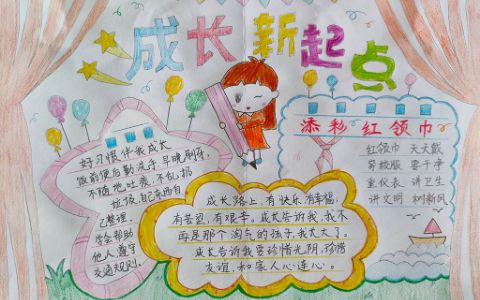 成长新起点
好习惯伴我成长
饭前便后勤洗手 早晚刷牙,
不随地吐痰、不乱扔
垃圾、自己东西自
己整理.
学会帮助
他人遵守
交通规则.
成长路上,有快乐有幸福,
有苦涩,有艰辛。成长告诉我,我不
再是那个淘气的孩子,我长大了。
成长告诉我要珍惜光阴,珍惜
友谊,和家人心连心。
添彩红领巾
红领巾 天天戴
穿校服 要干净
重仪表 讲卫生
讲文明 树新风